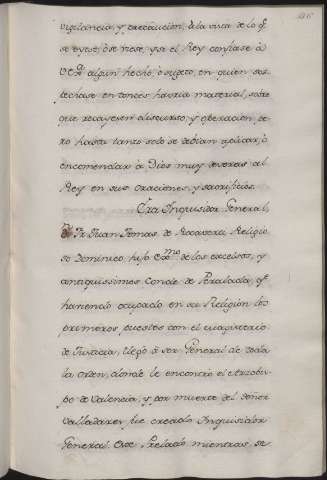 vigilancia, y precaucion, à la vista de lo qᵉ
se oyese, ò se nose, y si el Rey confiase à
V. Exª algun hecho, ò sujeto, en quien sos
pechase entonces havria material, sobre
que recayesen discurso, y operacion, pe
ro hasta tanto solo se debian aplicar, ò
encomendar à Dios muy deveras al
Rey en sus oraciones, y sacrificios.
Era Inquisidor General,
Fr. Juan Tomas de Rocaberti Religio
so Dominico, hijo de los excelsos, y
antiquissimos Conde de Peralada, qᵉ
haviendo ocupado en su Religion los
primeros puestos con el
de Justicia, llegò à ser General de toda
la orden, donde le encontrò el Arzobis
pado de Valencia, y por muerte del Señor
Valladares fue creado Inquisidor
General. Este Prelado mientras se